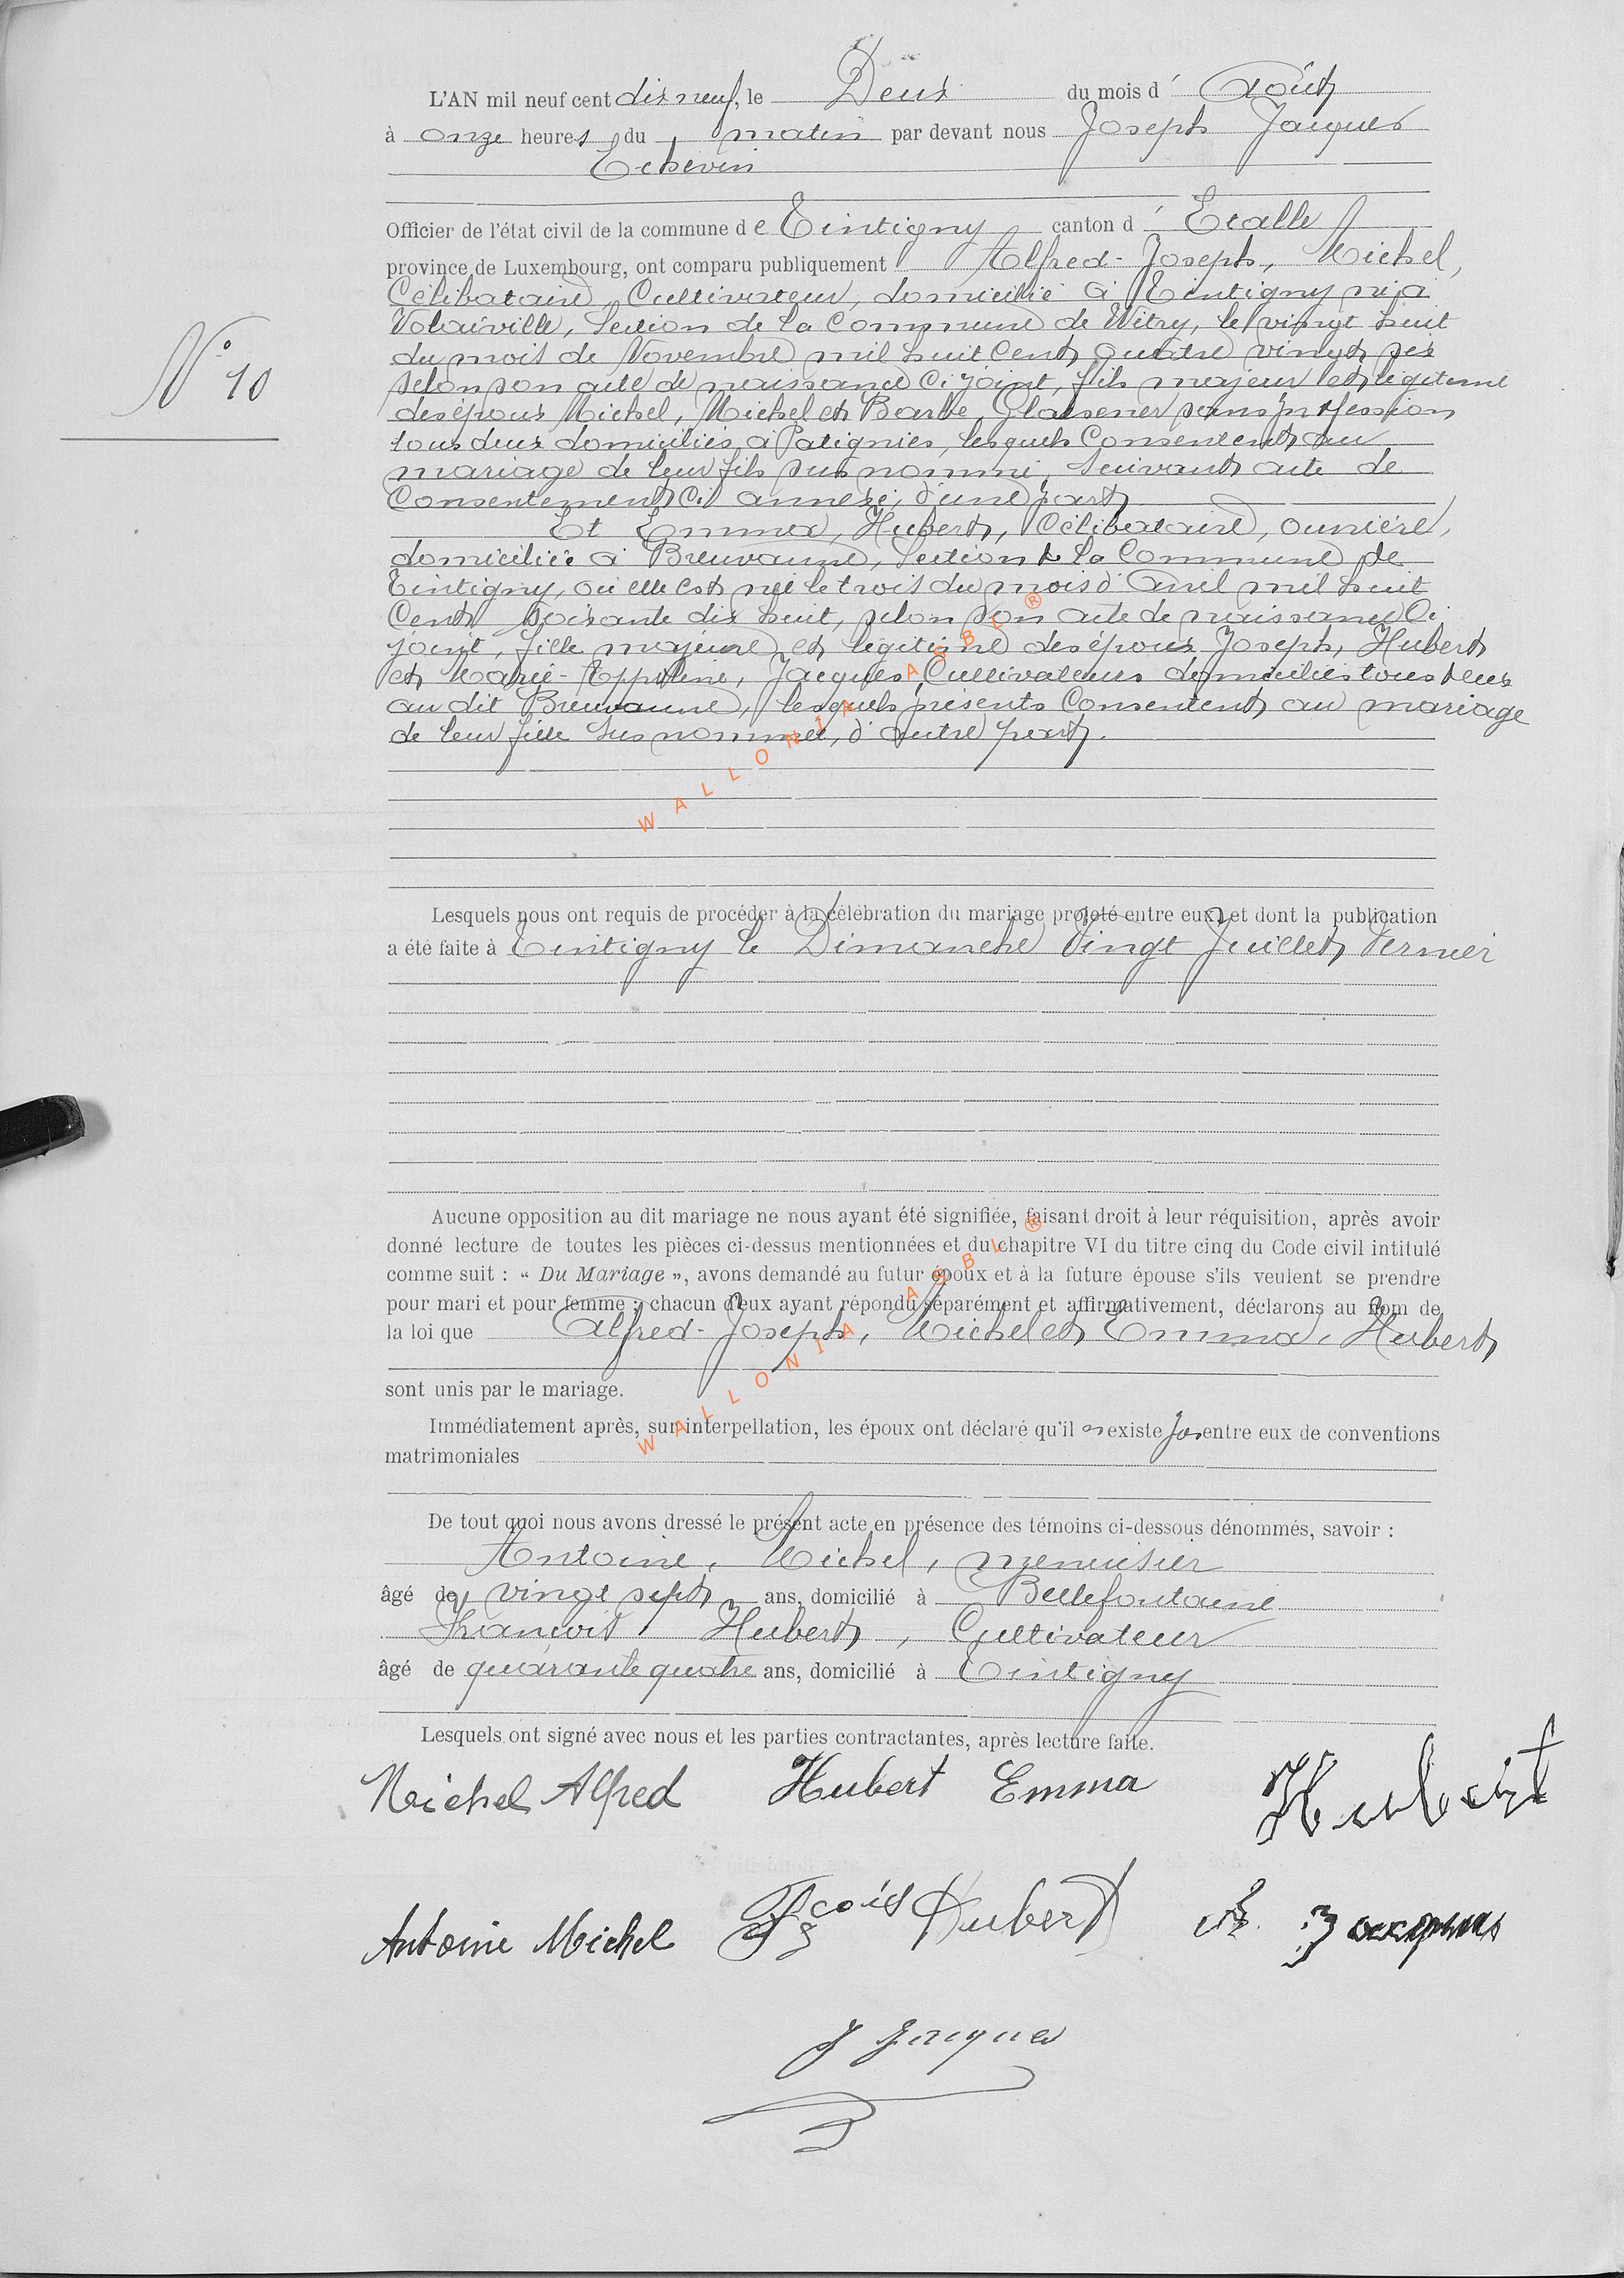 L'AN mil neuf cent dix neuf, le Deux du mois d' Août
à onze heures du matin par devant nous Joseph Jacques
Echevin
Officier de l'état civil de la commune de Tintigny canton d' Etalle
province de Luxembourg, ont comparu publiquement Alfred-Joseph, Michel,
Célibataire, Cultivateur, domicilié à Tintigny né à
Volaiville, Section de la Commune de Witry, le vingt huit
du mois de Novembre mil huit Cent quatre vingt six
selon son acte de naissance Ci joint, fils majeur et légitime
des époux Michel, Michel et Barbe, Glaesener sans profession
tous deux domiciliés à Patignies, lesquels Consentent au
mariage de leur fils sus nommé, suivant acte de
Consentement Ci annexé, d'une part
Et Emma, Hubert, Célibataire, ouvrière,
domiciliée à Breuvanne, Section de la Commune de
Tintigny, où elle est née le trois du mois d'Avril mil huit
Cent soixante dix huit, selon son acte de naissance Ci
joint, fille majeure et légitime des époux Joseph, Hubert
et Marie-Appoline, Jacques, Cultivateurs domiciliés tous deux
au dit Breuvanne, lesquels présents Consentent au mariage
de leur fille sus nommée, d'autre part.
Lesquels nous ont requis de procéder à la célébration du mariage projeté entre eux, et dont la publication
a été faite à Tintigny le Dimanche Vingt Juillet Dernier
Aucune opposition au dit mariage ne nous ayant été signifiée, faisant droit à leur réquisition, après avoir
donné lecture de toutes les pièces ci-dessus mentionnées et du chapitre VI du titre cinq du Code civil intitulé
comme suit : « Du Mariage », avons demandé au futur époux et à la future épouse s'ils veulent se prendre
pour mari et pour femme ; chacun d'eux ayant répondu séparément et affirmativement, déclarons au nom de
la loi que Alfred-Joseph, Michel et Emma, Hubert
sont unis par le mariage.
Immédiatement après, sur interpellation, les époux ont déclaré qu'il n'existe pas entre eux de conventions
matrimoniales
De tout quoi nous avons dressé le présent acte en présence des témoins ci-dessous dénommés, savoir :
Antoine, Michel, menuisier
âgé de vingt sept ans, domicilié à Bellefontaine
François Hubert, Cultivateur
âgé de quarante quatre ans, domicilié à Tintigny
Lesquels ont signé avec nous et les parties contractantes, après lecture faite.
N° 10
Michel Alfred Hubert Emma Hubert
Antoine Michel Fçois Hubert Jacques
J Jacques
WALLONIA ASBL ®
WALLONIA ASBL ®